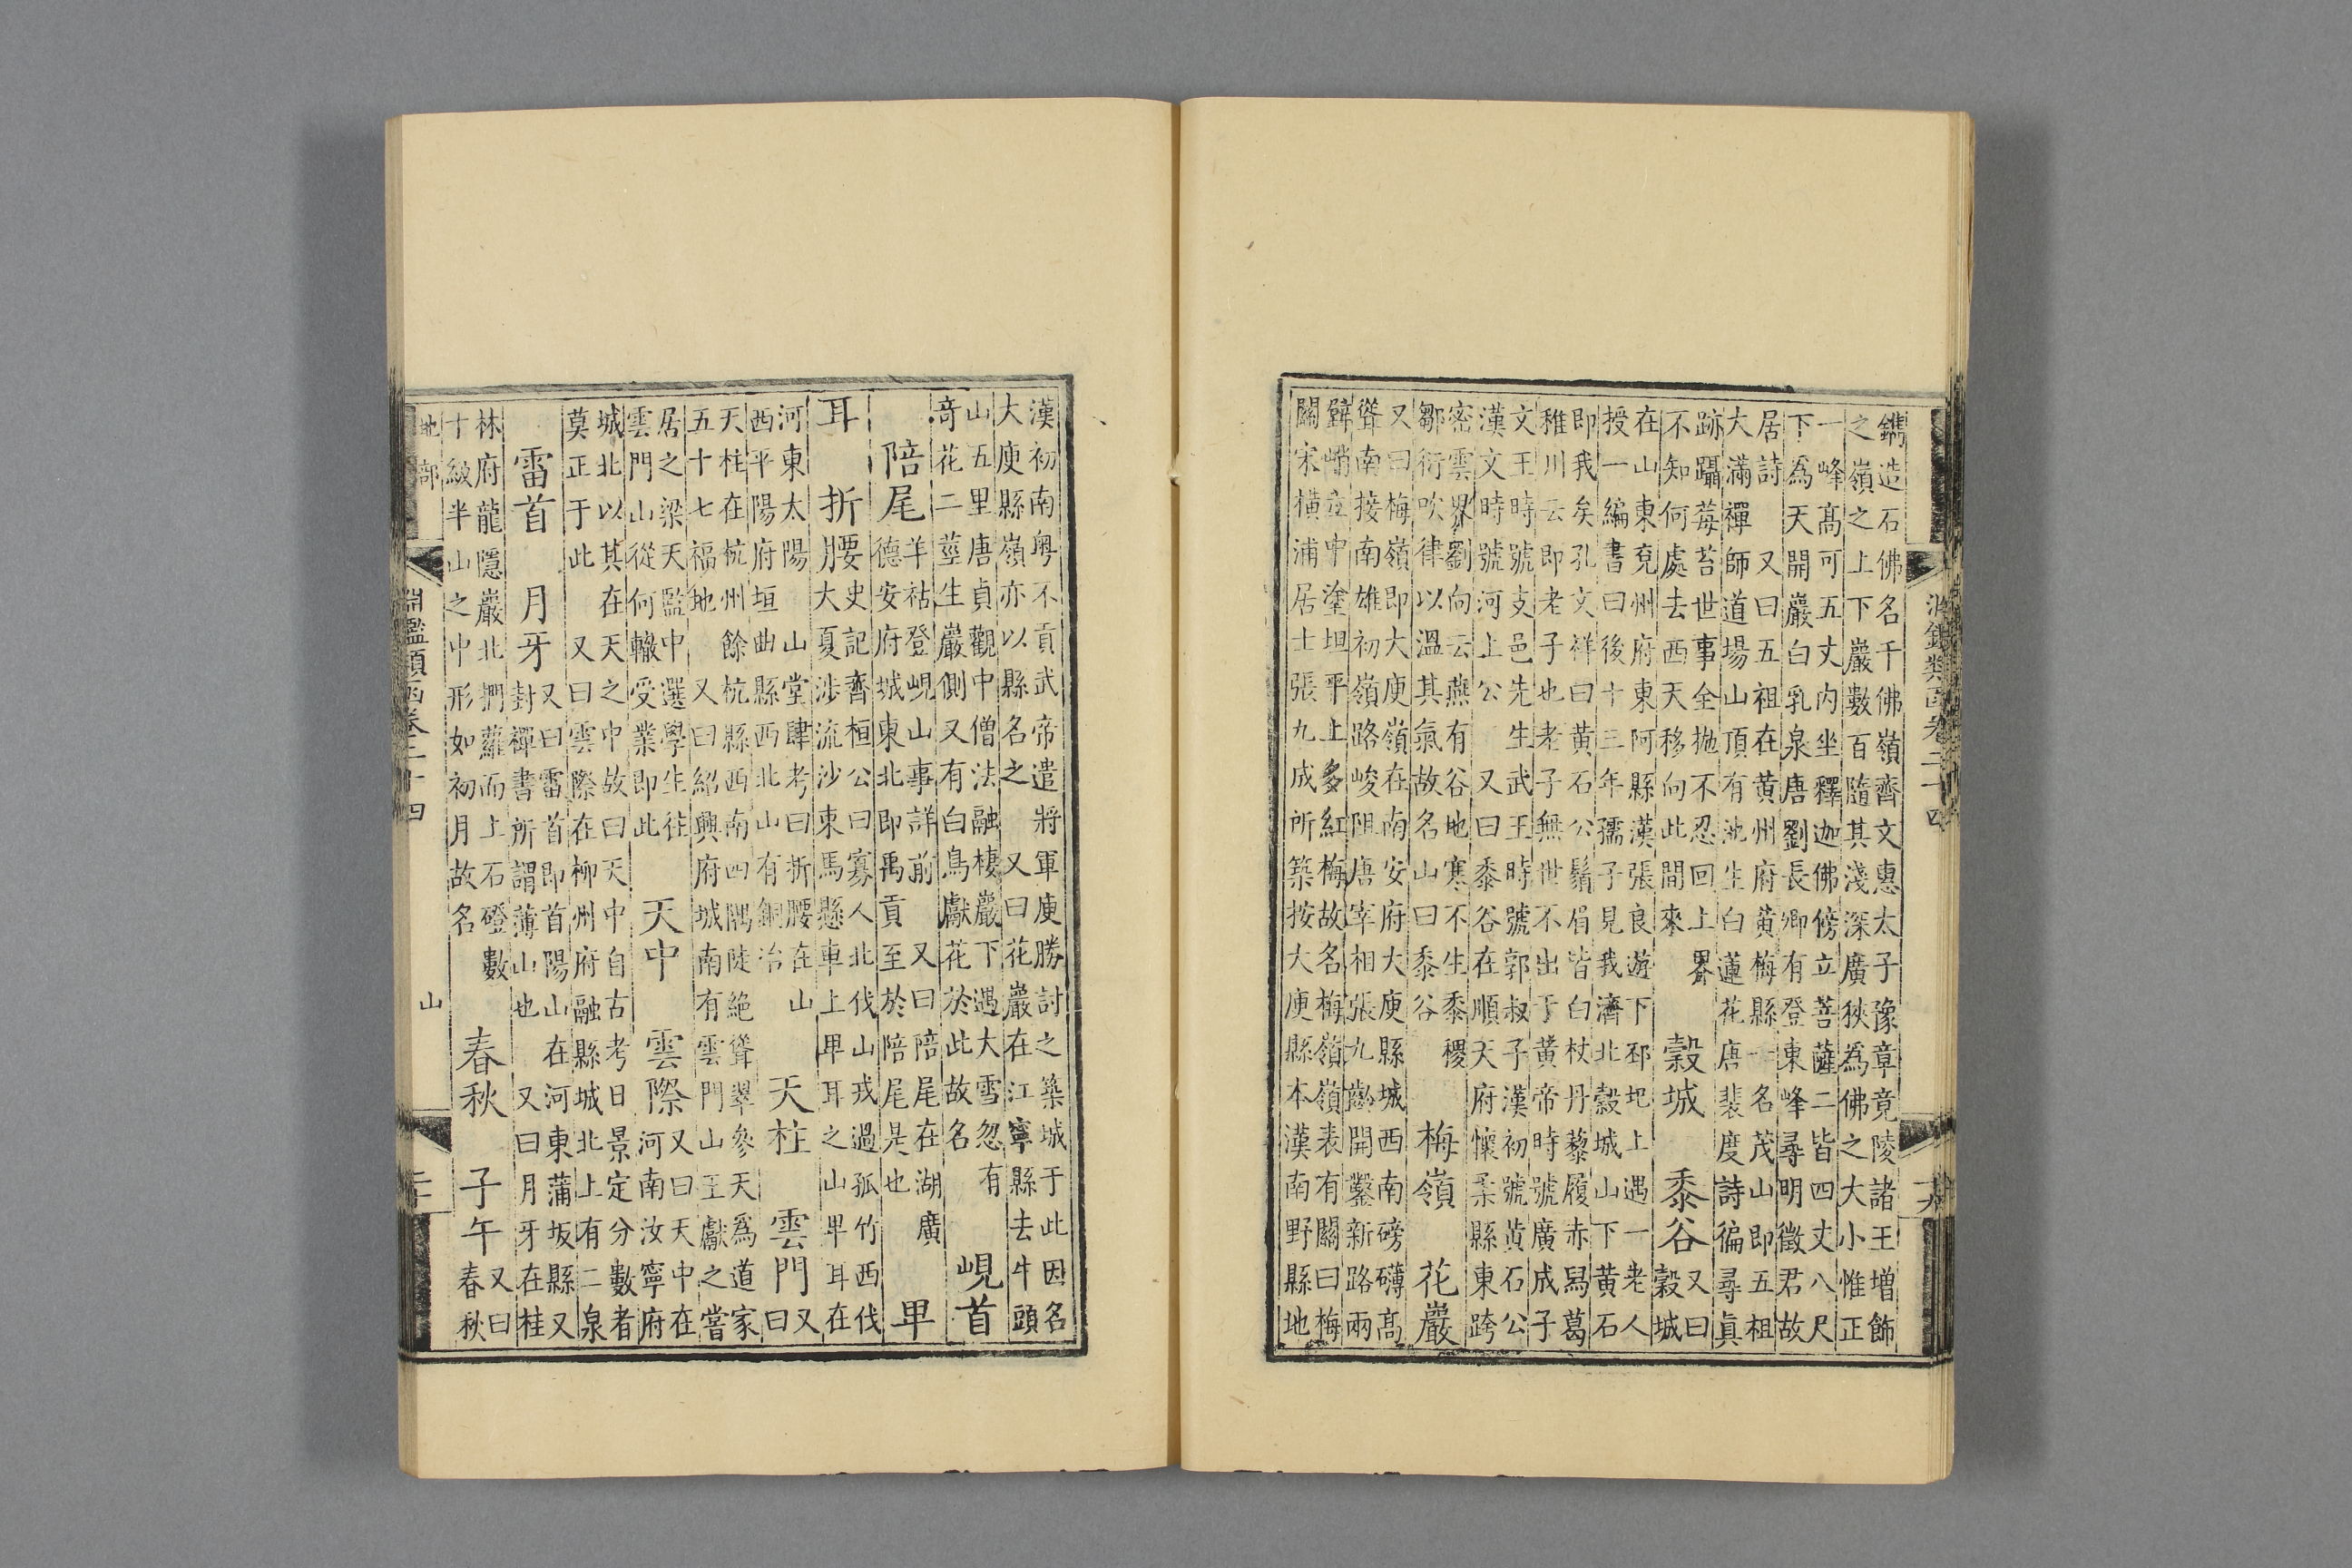 鐫造石佛名千佛嶺齊文惠太子豫章竟陵諸王增飾
之嶺之上下巖數百隨其淺深廣狹為佛之大小惟正
一峰高可五丈內坐釋迦佛傍立菩薩二皆四丈八尺
下為天開巖白乳泉唐劉長卿有登東峰尋明徵君故
居詩
又曰五祖在黃州府黃梅縣一名茂山即五祖
大滿禪師道場山頂有池生白蓮花唐裴度詩徧尋真
跡躡莓苔世事全拋不忍回上界
不知何處去西天移向此間來
穀城
黍谷
又曰
穀城
在山東兗州府東阿縣漢張良遊下邳圯上遇一老人
授一編書曰後十三年孺子見我濟北穀城山下黃石
即我矣孔文祥曰黃石公鬚眉皆白杖丹藜履赤舄葛
稚川云即老子也老子無世不出于黃帝時號廣成子
文王時號支邑先生武王時號郭叔子漢初號黃石公
漢文時號河上公
又曰黍谷在順天府懷柔縣東跨
密雲界劉向云燕有谷地寒不生黍稷
鄒衍吹律以溫其氣故名山曰黍谷
梅嶺
花巖
又曰梅嶺即大庾嶺在南安府大庾縣城西南磅礴高
聳南接南雄初嶺路峻阻唐宰相張九齡開鑿新路兩
壁峭立中塗坦平上多紅梅故名梅嶺嶺表有關曰梅
關宋橫浦居士張九成所築按大庾縣本漢南野縣地
漢初南粵不貢武帝遣將軍庾勝討之築城于此因名
大庾縣嶺亦以縣名之
又曰花巖在江寧縣去牛頭
山五里唐貞觀中僧法融棲巖下遇大雪忽有
奇花二莖生巖側又有白鳥獻花於此故名
峴首
陪尾
羊祜登峴山事詳前
又曰陪尾在湖廣
德安府城東北即禹貢至於陪尾是也
卑
耳
折腰
史記齊桓公曰寡人北伐山戎過孤竹西伐
大夏涉流沙束馬懸車上卑耳之山卑耳在
河東太陽
山堂肆考曰折腰在山
西平陽府垣曲縣西北山有銅冶
天柱
雲門
又
曰
天柱在杭州餘杭縣西南四隅陡絕聳翠參天為道家
五十七福地
又曰紹興府城南有雲門山王獻之嘗
居之梁天監中選學生往
雲門山從何轍受業即此
天中
雲際
又曰天中在
河南汝寧府
城北以其在天之中故曰天中自古考日景定分數者
莫正于此
又曰雲際在柳州府融縣城北上有二泉
雷首
月牙
又曰雷首即首陽山在河東蒲坂縣又
封禪書所謂薄山也
又曰月牙在桂
林府龍隱巖北捫蘿而上石磴數
十級半山之中形如初月故名
春秋
子午
又曰
春秋
地部
山
淵鑑類函卷二十四